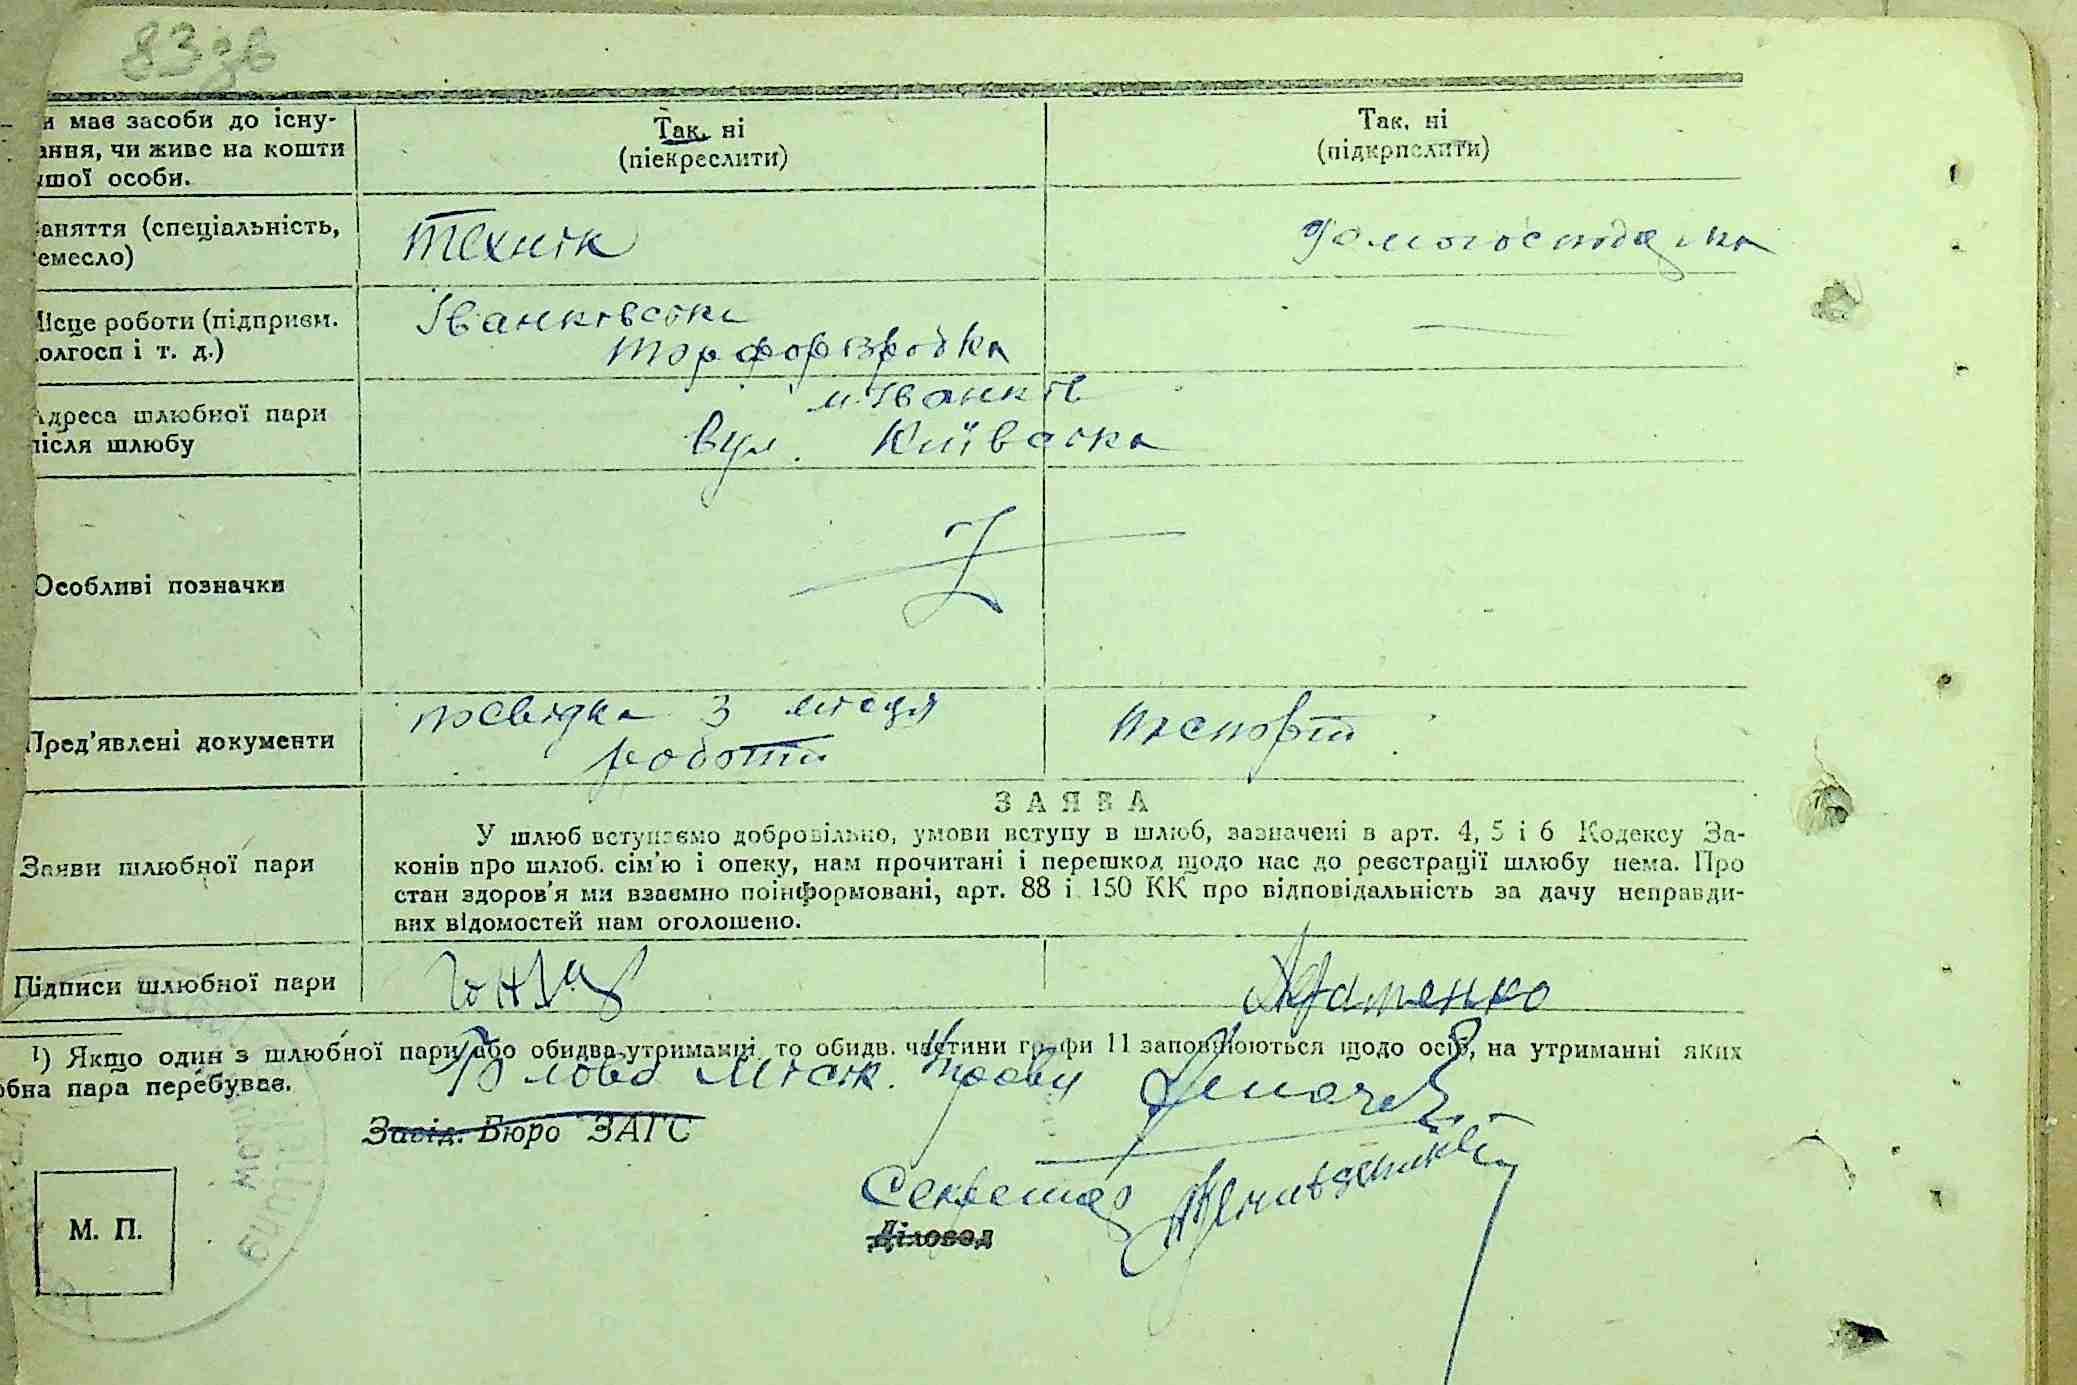 83зв
и має засоби до існу-
ання, чи живе на кошти
ншої особи.
Так, ні
(піекреслити)
Так, ні
(підкрпслити)
аняття (спеціальність,
емесло)
технік
домогосподарка
Місце роботи (підприєм.
олгосп і т. д.)
Іванківська
торфорозробка
Адреса шлюбної пари
після шлюбу
м. Іванків
вул. Київська
Особливі позначки
Пред'явлені документи
посвідка з місця
роботи
паспорт
Заяви шлюбної пари
ЗАЯВА
У шлюб вступаємо добровільно, умови вступу в шлюб, зазначені в арт. 4, 5 і 6 Кодексу За-
конів про шлюб. сім'ю і опеку, нам прочитані і перешкод щодо нас до реєстрації шлюбу нема. Про
стан здоров'я ми взаємно поінформовані, арт. 88 і 150 КК про відповідальність за дачу неправди-
вих відомостей нам оголошено.
Підписи шлюбної пари
¹) Якщо один з шлюбної пари або обидва утриманці, то обидв. частини графи 11 заповнюються щодо осіб, на утриманні яких
обна пара перебуває.
Голова Міськ. Управи
Завід. Бюро ЗАГС
Секретар
Діловод
М. П.